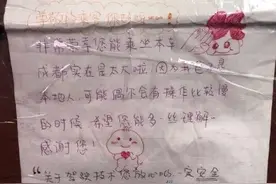 非常荣幸您能乘坐本车
成都实在是太大啦 因为我也不是
本地人，可能偶尔会有操作比较慢
的时候，希望您能多一丝理解~
感谢您！
“关于驾驶技术您放心哈，安安全